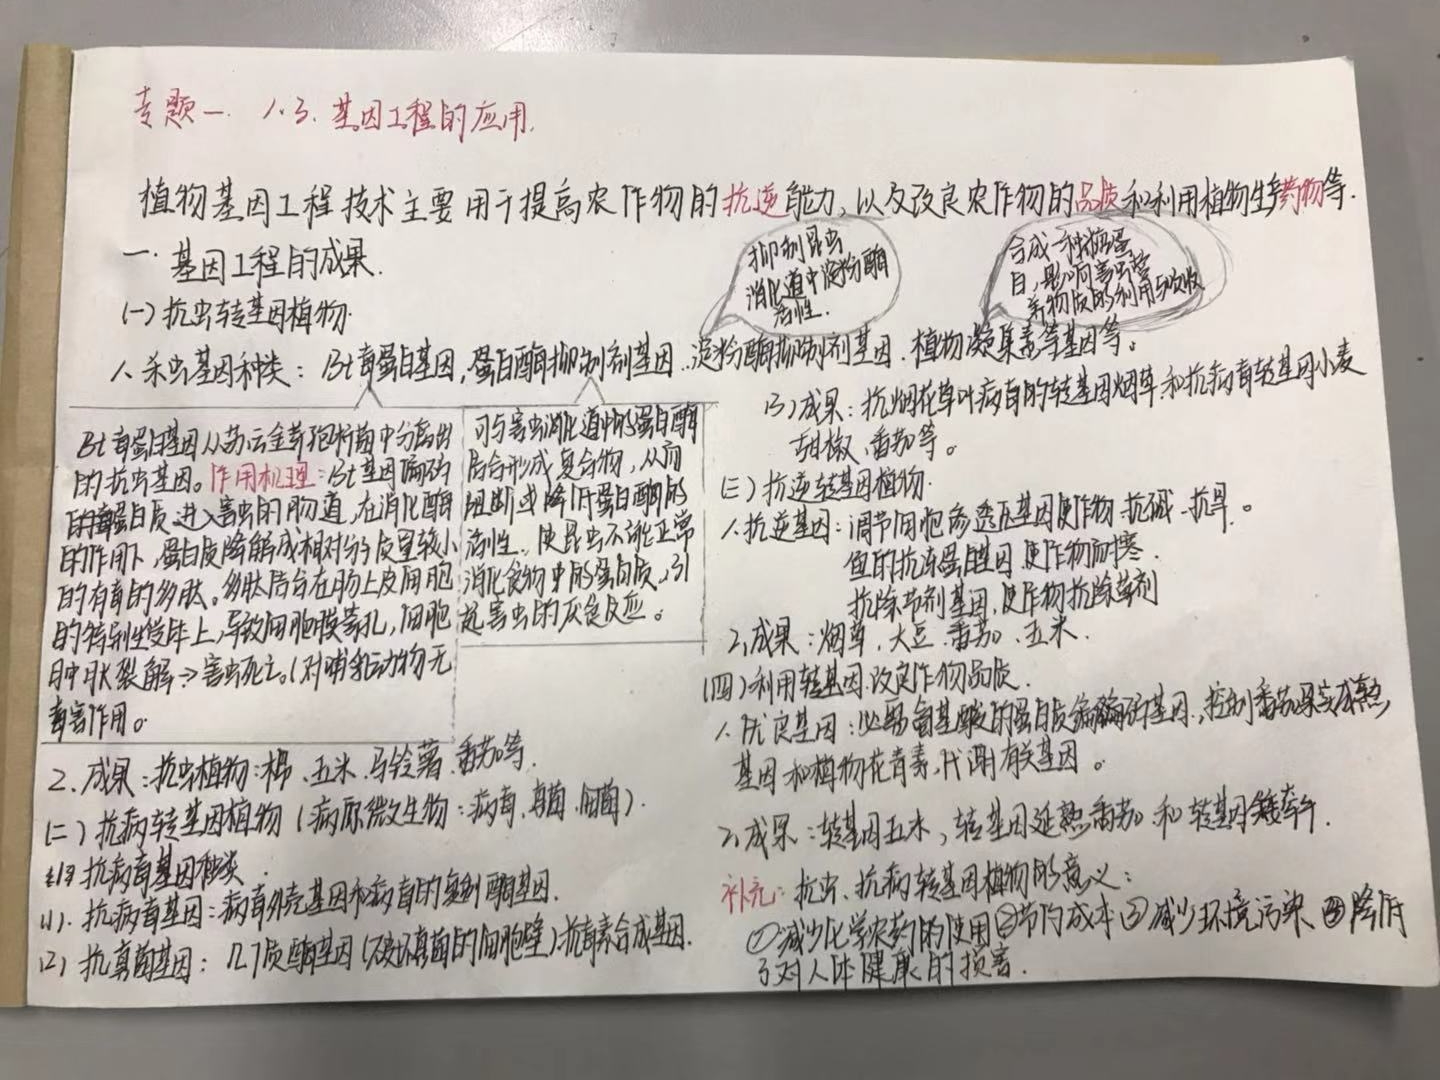 专题一. 1.3. 基因工程的应用.
植物基因工程技术主要用于提高农作物的抗逆能力,以及改良农作物的品质和利用植物生产药物等.
一. 基因工程的成果.
(一)抗虫转基因植物.
抑制昆虫
消化道中淀粉酶
活性.
合成一种糖蛋
白,影响害虫营
养物质的利用与吸收
1. 杀虫基因种类: Bt毒蛋白基因,蛋白酶抑制剂基因.淀粉酶抑制剂基因.植物凝集素等基因等。
Bt毒蛋白基因从苏云金芽孢杆菌中分离出
的抗虫基因。作用机理:Bt基因编码
的毒蛋白质进入害虫的肠道,在消化酶
的作用下,蛋白质降解成相对分子质量较小
的有毒的多肽。多肽结合在肠上皮细胞
的特别受体上,导致细胞膜穿孔,细胞
肿胀裂解→害虫死亡。(对哺乳动物无
毒害作用。
可与害虫消化道中的蛋白酶
结合形成复合物,从而
阻断或降低蛋白酶的
活性.使昆虫不能正常
消化食物中的蛋白质,引
起害虫的厌食反应。
2. 成果:抗虫植物:棉、玉米、马铃薯、番茄等.
(二)抗病转基因植物(病原微生物:病毒、真菌、细菌).
抗病毒基因种类.
(1). 抗病毒基因:病毒外壳基因和病毒的复制酶基因.
(2) 抗真菌基因: 几丁质酶基因(破坏真菌的细胞壁)抗毒素合成基因.
(3)成果:抗烟花草叶病毒的转基因烟草和抗病毒转基因小麦
甜椒、番茄等。
(三)抗逆转基因植物.
1.抗逆基因:调节细胞渗透压基因使作物抗碱、抗旱。
鱼的抗冻蛋白基因使作物耐寒.
抗除草剂基因,使作物抗除草剂
2.成果:烟草、大豆、番茄、玉米.
(四)利用转基因改良作物品质.
1.优良基因:必需氨基酸的蛋白质编码基因、控制番茄果实成熟
基因和植物花青素代谢有关基因。
2.成果:转基因玉米,转基因延熟番茄和转基因矮牵牛.
补充:抗虫、抗病转基因植物的意义:
①减少化学农药的使用②节约成本③减少环境污染④降低
了对人体健康的损害.